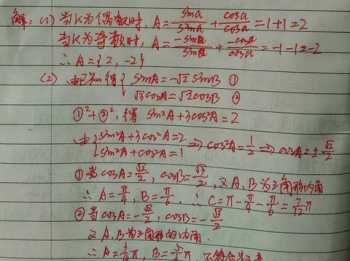 解：(1) 当K为偶数时，A = sinα/sinα + cosα/cosα = 1+1 = 2
当K为奇数时，A = -sinα/sinα + -cosα/cosα = -1-1 = -2
∴ A = {2, -2}
(2) 由已知得 { sinA = -√2 sinB ①
√3cosA = √2cosB ②
①²+②²，得 sin²A + 3cos²A = 2
由 { sin²A + 3cos²A = 2
sin²A + cos²A = 1 ⇒ cos²A = 1/2 ⇒ cosA = ± √2/2
① 当 cosA = √2/2, cosB = √3/2, 又A, B为三角形内角
∴ A = π/4, B = π/6, ∴ C = π - π/4 - π/6 = 7/12 π
② 当 cosA = -√2/2, cosB = -√3/2
又A, B为三角形的内角
∴ A = 3/4 π, B = 5/6 π, 不符合